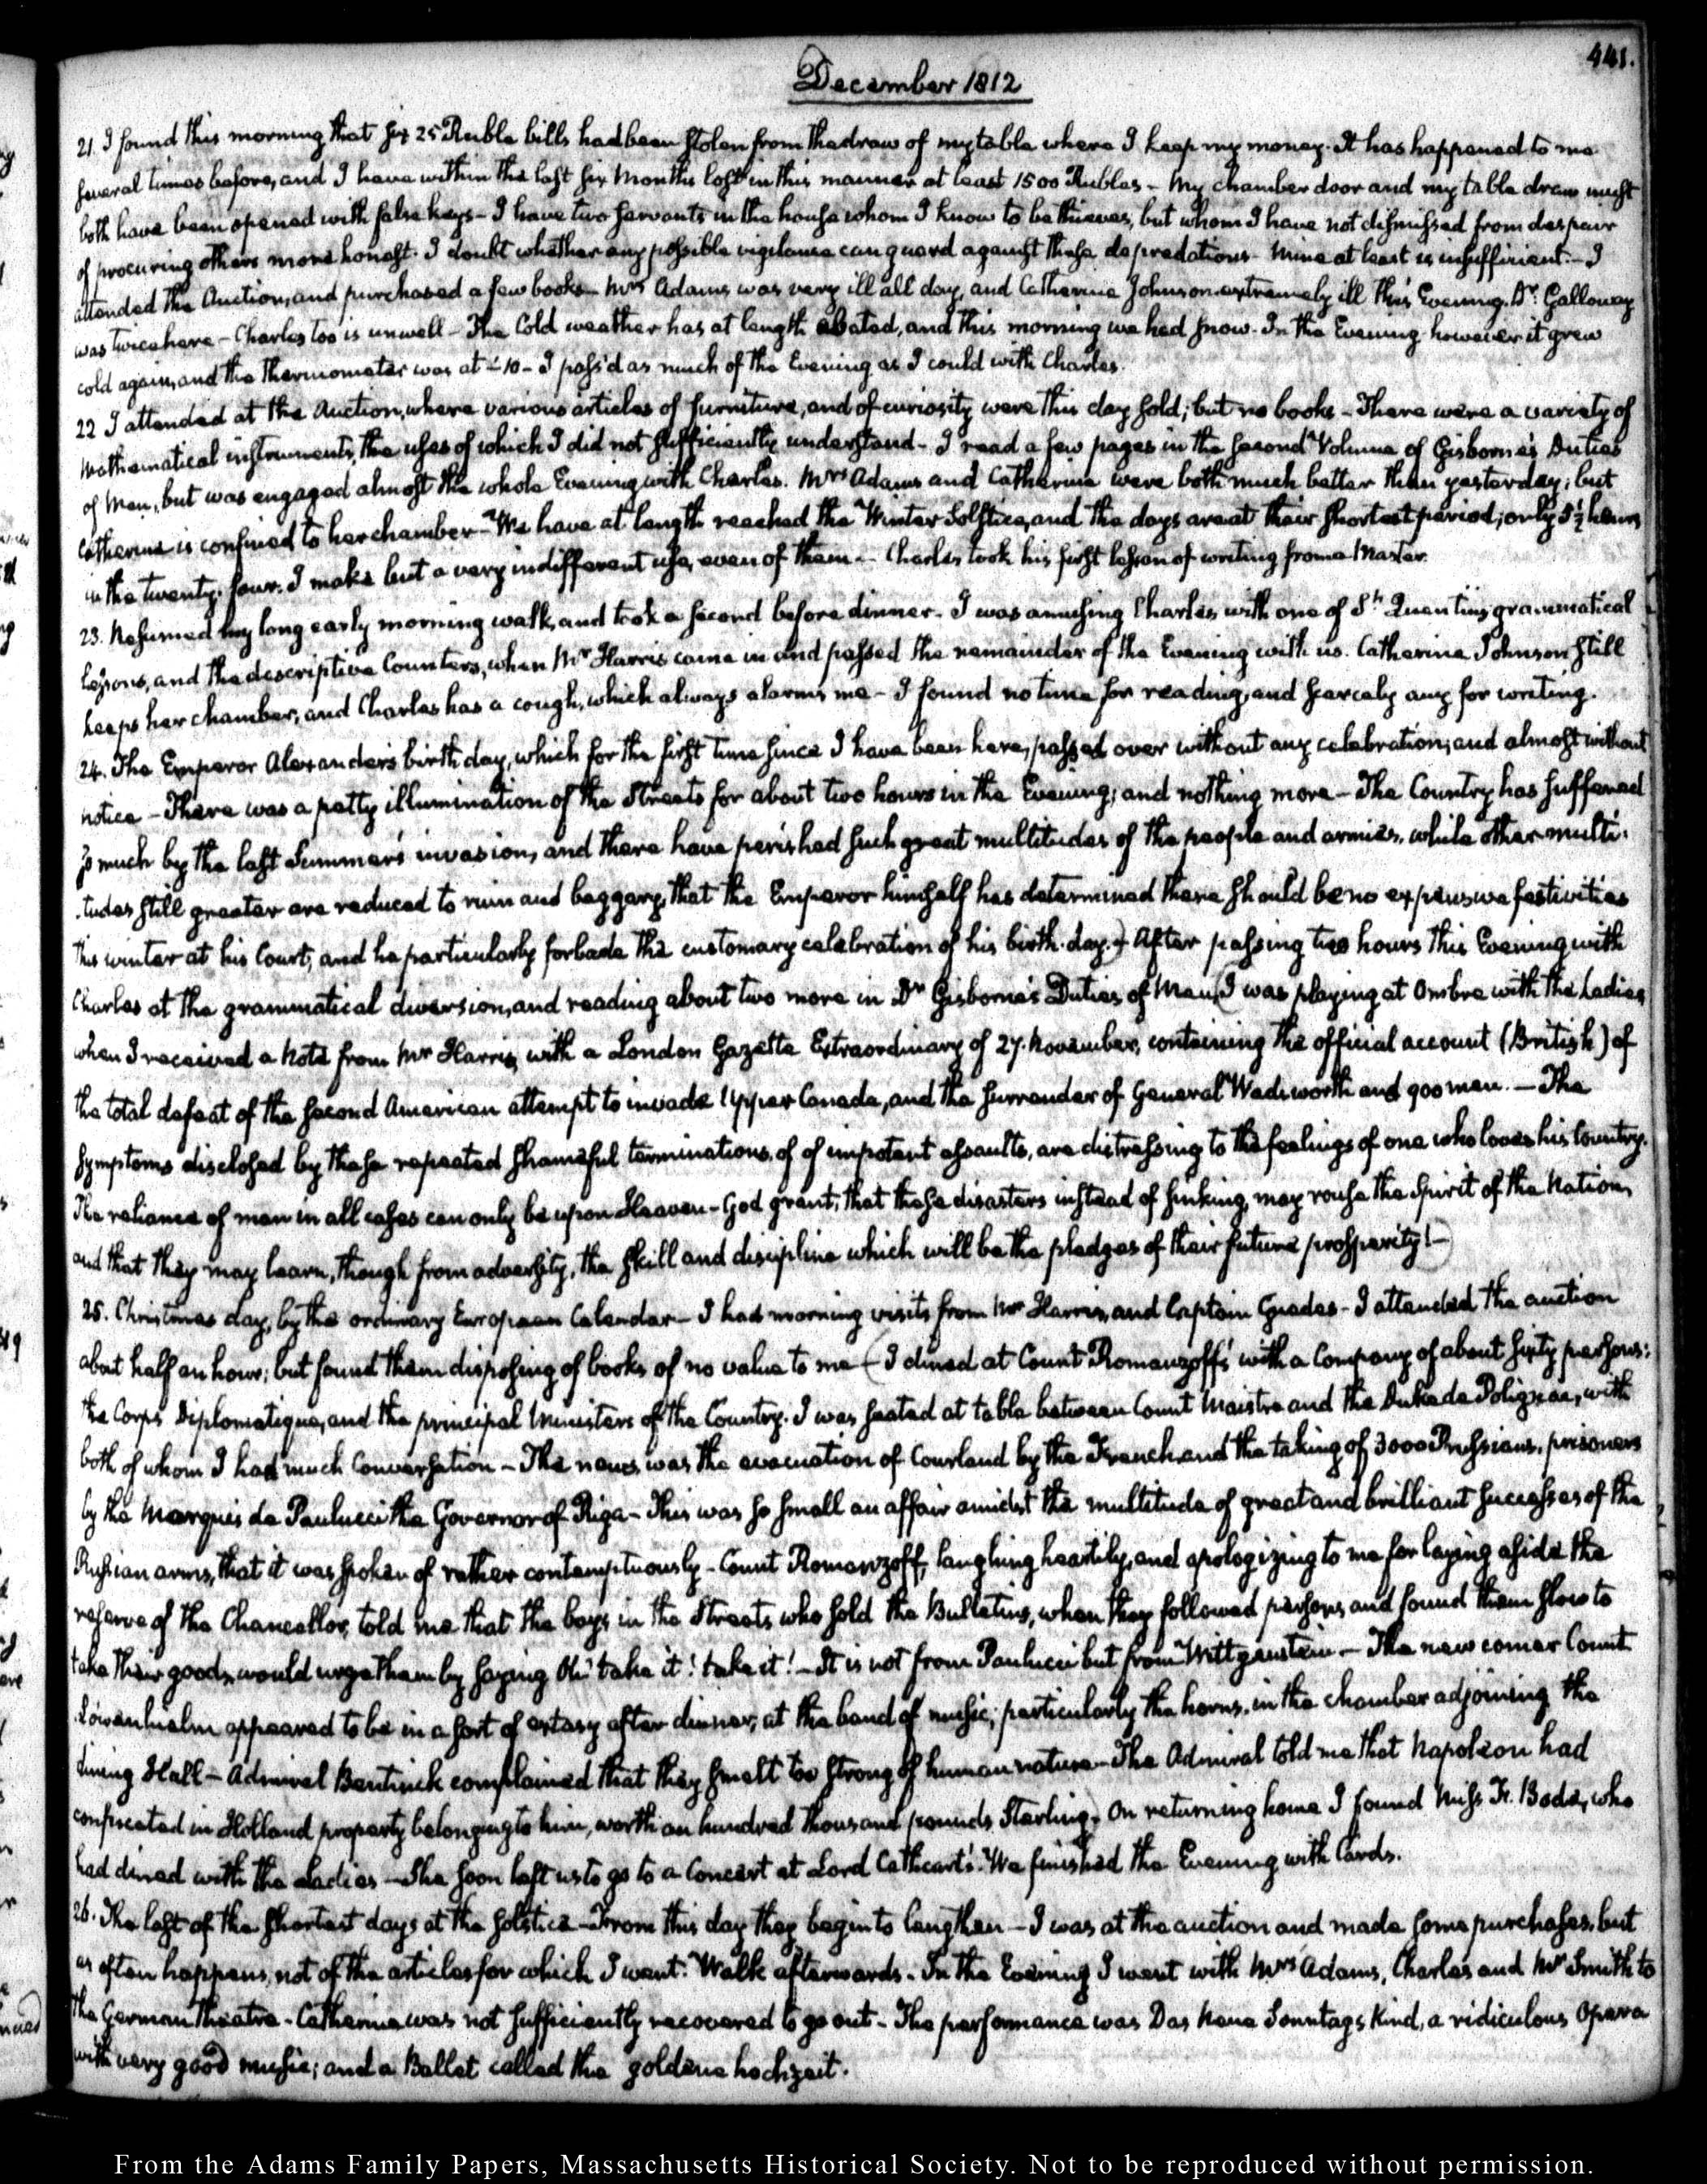 441.
December 1812
21. I found this morning that six 25 Ruble bills had been stolen from the draw of my table where I keep my money. It has happened to me
several times before, and I have within the last six Months lost in this manner at least 1500 Rubles - My chamber door and my table draw must
both have been opened with false keys - I have two servants in the house whom I know to be thieves, but whom I have not dismissed from despair
of procuring others more honest. I doubt whether any possible vigilance can guard against these depredations - Mine at least is insufficient. - I
attended the Auction, and purchased a few books - Mrs Adams was very ill all day, and Catherine Johnson extremely ill this Evening. Dr. Galloway
was twice here - Charles too is unwell - The Cold weather has at length abated, and this morning we had snow. In the Evening however it grew
cold again, and the Thermometer was at -10 - I pass'd as much of the Evening as I could with Charles.
22 I attended at the Auction, where various articles of furniture, and of curiosity were this day sold; but no books - There were a variety of
Mathematical instruments, the uses of which I did not sufficiently understand - I read a few pages in the second Volume of Gisborne's Duties
of Man, but was engaged almost the whole Evening with Charles. Mrs Adams and Catherine were both much better than yesterday; but
Catherine is confined to her chamber - We have at length reached the Winter Solstice, and the days are at their shortest period; only 5½ hours
in the twenty-four. I make but a very indifferent use, even of them - Charles took his first lesson of writing from a Master.
23. Resumed my long early morning walk, and took a second before dinner - I was amusing Charles with one of St. Quentin's grammatical
lessons, and the descriptive Counters, when Mr Harris came in and passed the remainder of the Evening with us. Catherine Johnson still
keeps her chamber, and Charles has a cough, which always alarms me - I found no time for reading, and scarcely any for writing.
24. The Emperor Alexander's birth day, which for the first time since I have been here, passed over without any celebration, and almost without
notice - There was a petty illumination of the Streets for about two hours in the Evening; and nothing more - The Country has suffered
so much by the last Summer's invasion, and there have perished such great multitudes of the people and armies, while other multi-
-tudes still greater are reduced to ruin and beggary, that the Emperor himself has determined there should be no expensive festivities
this winter at his Court, and he particularly forbade the customary celebration of his birth-day.) After passing two hours this Evening with
Charles at the grammatical diversion, and reading about two more in Dr Gisborne's Duties of Man, (I was playing at Ombre with the Ladies,
when I received a Note from Mr Harris, with a London Gazette Extraordinary of 27. November, containing the official account (British) of
the total defeat of the second American attempt to invade Upper Canada, and the surrender of General Wadsworth and 900 men. - The
symptoms disclosed by these repeated shameful terminations, of of impotent assaults, are distressing to the feelings of one who loves his Country.
The reliance of man in all cases can only be upon Heaven - God grant, that these disasters instead of sinking, may rouse the Spirit of the Nation,
and that they may learn, though from adversity, the skill and discipline which will be the pledges of their future prosperity! -)
25. Christmas day, by the ordinary European Calendar - I had morning visits from Mr Harris, and Captain Guedes - I attended the auction
about half an hour; but found them disposing of books of no value to me - (I dined at Count Romanzoff's with a Company of about sixty persons:
the Corps Diplomatique, and the principal Ministers of the Country. I was seated at table between Count Maistre and the Duke de Polignac, with
both of whom I had much Conversation - The news was the evacuation of Courland by the French, and the taking of 3000 Prussians, prisoners
by the Marquis de Paulucci the Governor of Riga - This was so small an affair amidst the multitude of great and brilliant successes of the
Russian arms, that it was spoken of rather contemptuously - Count Romanzoff, laughing heartily, and apologizing to me for laying aside the
reserve of the Chancellor, told me that the boys in the Streets who sold the Bulletins, when they followed persons, and found them slow to
take their goods, would urge them by saying Oh! take it! take it! - It is not from Paulucci but from Wittgenstein - The new comer Count
Löwenhielm appeared to be in a sort of extasy after dinner, at the band of music; particularly the horns, in the chamber adjoining the
dining Hall - Admiral Bentinck complained that they smelt too strong of human nature - The Admiral told me that Napoleon had
confiscated in Holland property belonging to him, worth an hundred thousand pounds Sterling) On returning home I found Miss Fr. Bode, who
had dined with the Ladies - She soon left us to go to a Concert at Lord Cathcart's. We finished the Evening with Cards.
26. The last of the shortest days at the solstice - From this day they begin to lengthen - I was at the auction and made some purchases, but
as often happens, not of the articles for which I went. Walk afterwards. In the Evening I went with Mrs Adams, Charles and Mr Smith to
the German Theatre - Catherine was not sufficiently recovered to go out - The performance was Das Neue Sonntags Kind, a ridiculous Opera
with very good music; and a Ballet called the goldene hochzeit.
From the Adams Family Papers, Massachusetts Historical Society. Not to be reproduced without permission.